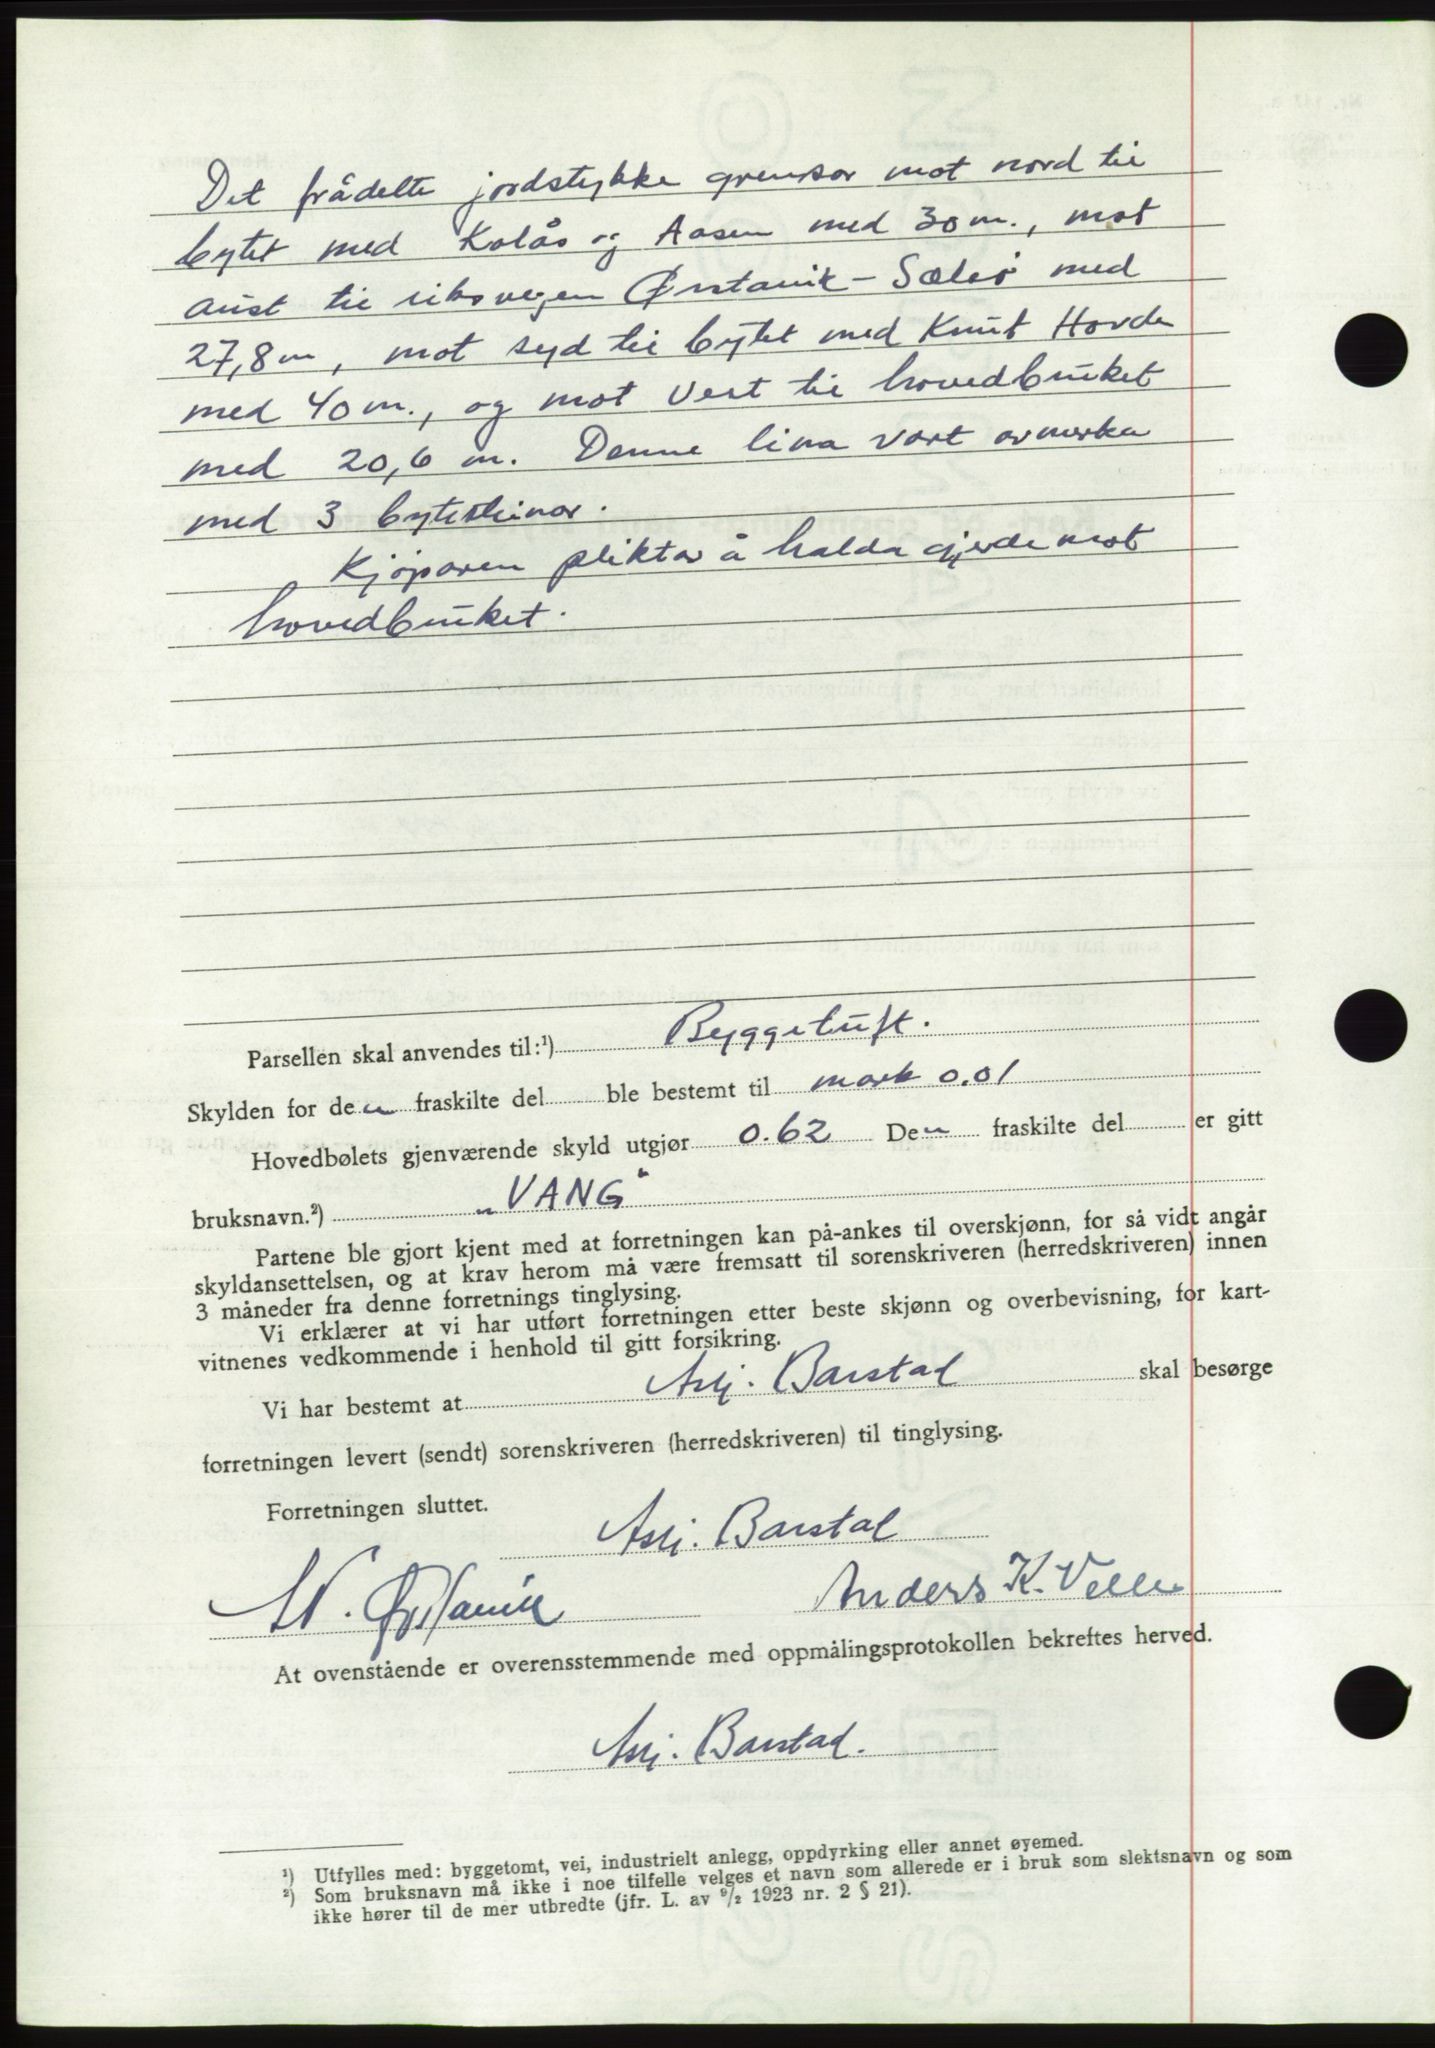 Det frådelte jordstykke grensar mot nord til
bytet med Kolås og Aasen med 30 m., mot
aust til riksvegen Ørstavik - Sæbø med
27,8 m, mot syd til bytet med Knut Hovde
med 40 m., og mot vest til hovedbruket
med 20,6 m. Denne lina vart avmerka
med 3 bytesteinar.
Kjøparen pliktar å halda gjerde mot
hovedbruket.
Parsellen skal anvendes til:¹) Byggetuft.
Skylden for den fraskilte del ble bestemt til mark 0.01
Hovedbølets gjenværende skyld utgjør 0.62 Den fraskilte del er gitt
bruksnavn.²) „VANG"
Partene ble gjort kjent med at forretningen kan på-ankes til overskjønn, for så vidt angår
skyldansettelsen, og at krav herom må være fremsatt til sorenskriveren (herredskriveren) innen
3 måneder fra denne forretnings tinglysing.
Vi erklærer at vi har utført forretningen etter beste skjønn og overbevisning, for kart-
vitnenes vedkommende i henhold til gitt forsikring.
Vi har bestemt at Aslj. Barstad skal besørge
forretningen levert (sendt) sorenskriveren (herredskriveren) til tinglysing.
Forretningen sluttet.
Aslj. Barstad
Ørstavik
Anders K. Velle
At ovenstående er overensstemmende med oppmålingsprotokollen bekreftes herved.
Aslj. Barstad.
¹) Utfylles med: byggetomt, vei, industrielt anlegg, oppdyrking eller annet øyemed.
²) Som bruksnavn må ikke i noe tilfelle velges et navn som allerede er i bruk som slektsnavn og som
ikke hører til de mer utbredte (jfr. L. av 9/2 1923 nr. 2 § 21).